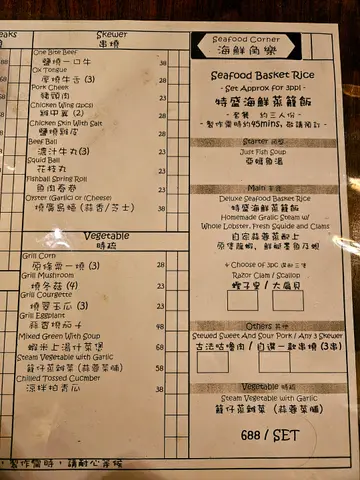 Skewer
串燒
One Bite Beef
鹽燒一口牛 38
Ox Tongue
厚燒牛舌 (3) 28
Pork Cheek
豬頸肉 23
Chicken Wing (2pcs)
雞中翼 (2) 38
Chicken Skin With Salt
鹽燒雞皮 28
Beef Ball
濃汁牛丸 (3) 23
Squid Ball
花枝丸 23
Fishball Spring Roll
魚肉春卷 23
Oyster (Garlic or Cheese)
燒廣島蠔 (蒜香/芝士) 38
Vegetable
時蔬
Grill Corn
原條粟一燒 (3) 28
Grill Mushroom
燒冬菇 (4) 23
Grill Courgette
燒翠玉瓜 (3) 23
Grill Eggplant
蒜茸燒茄子 48
Mixed Green With Soup
蝦米上湯什菜煲 68
Steam Vegetable with Garlic
籠仔蒸雜菜 (蒜蓉菜脯) 58
Chilled Tossed Cucmber
涼拌柏青瓜 38
Seafood Corner
海鮮角樂
Seafood Basket Rice
- Set Approx for 3ppl -
特盛海鮮蒸籠飯
- 套餐 約三人份 -
- 製作需時約45mins, 敬請預訂 -
Starter
Just Fish Soup
亞婆魚湯
Main
Deluxe Seafood Basket Rice
特盛海鮮蒸籠飯
Homemade Gralic Steam w/
Whole Lobster, Fresh Squide and Clams
自家蒜蓉蒸配上
原隻龍蝦, 鮮魷墨魚及蜆
4 Choose of 3pc 選配三隻
Razor Clam / Scallop
蟶子皇 / 大扇貝
Others 其他
Stewed Sweet And Sour Pork / Any 3 Skewer
古法咕嚕肉 / 自選一款串燒 (3串)
Vegetable 時蔬
Steam Vegetable with Garlic
籠仔蒸雜菜 (蒜蓉菜脯)
688 / SET
製作需時, 請耐心等候